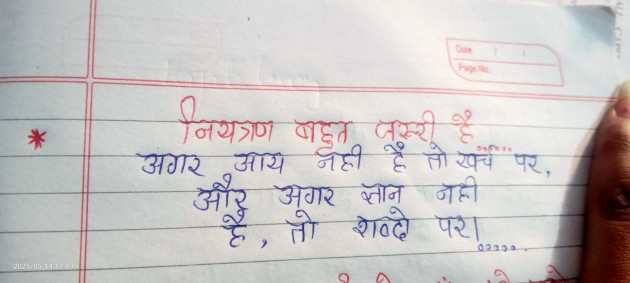 Date / /
Page No.
* नियत्रण बाहुत जरुरी है
अगर आय नही है तो खर्च पर,
और अगर ज्ञान नही
है, तो शब्दो पर।
2025/05/14 13:49